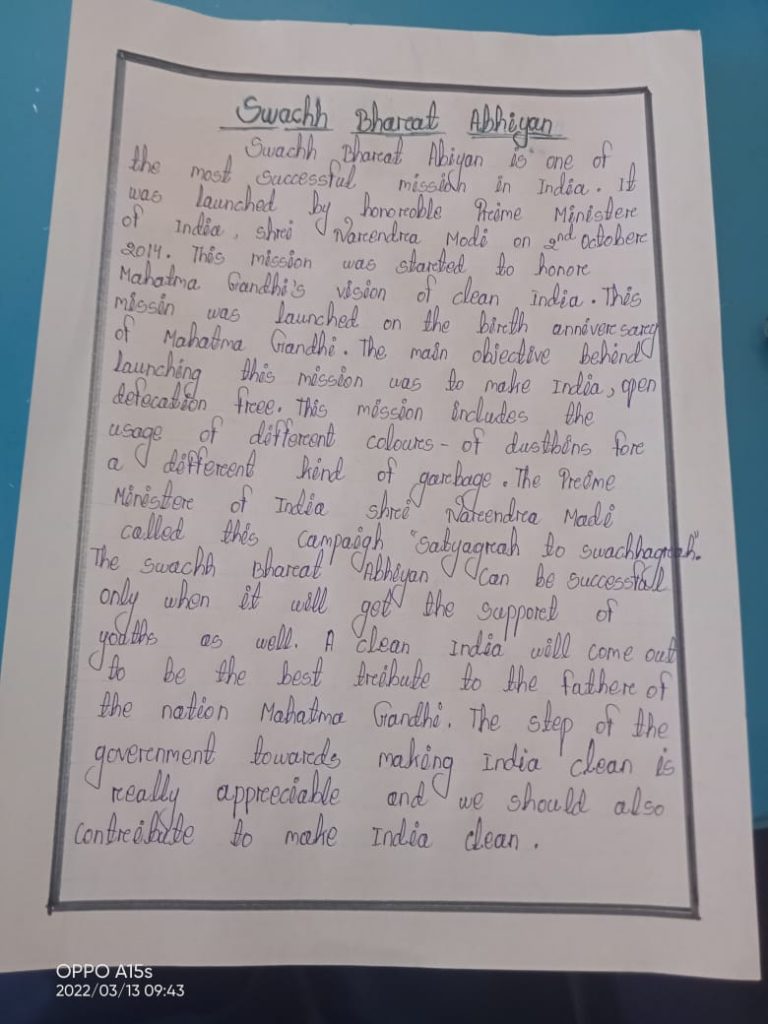 Swachh Bharat Abhiyan
Swachh Bharat Abiyan is one of
the most successful missioh in India. It
was launched by honorable Prime Minister
of India, shri Narendra Modi on 2nd October
2014. This mission was started to honor
Mahatma Gandhi's vision of clean India. This
missin was launched on the birth anniversary
of Mahatma Gandhi. The main objective behind
launching this mission was to make India, open
defecation free. This mission includes the
usage of different colours - of dustbins for
a different kind of garbage. The Prime
Minister of India shri Narendra Madi
called this campaigh "Satyagrah to swachhagrah".
The swachh Bharat Abhiyan can be successfull
only when it will get the support of
youths as well. A clean India will come out
to be the best tribute to the father of
the nation Mahatma Gandhi. The step of the
government towards making India clean is
really appreciable and we should also
contribute to make India clean.
OPPO A15s
2022/03/13 09:43